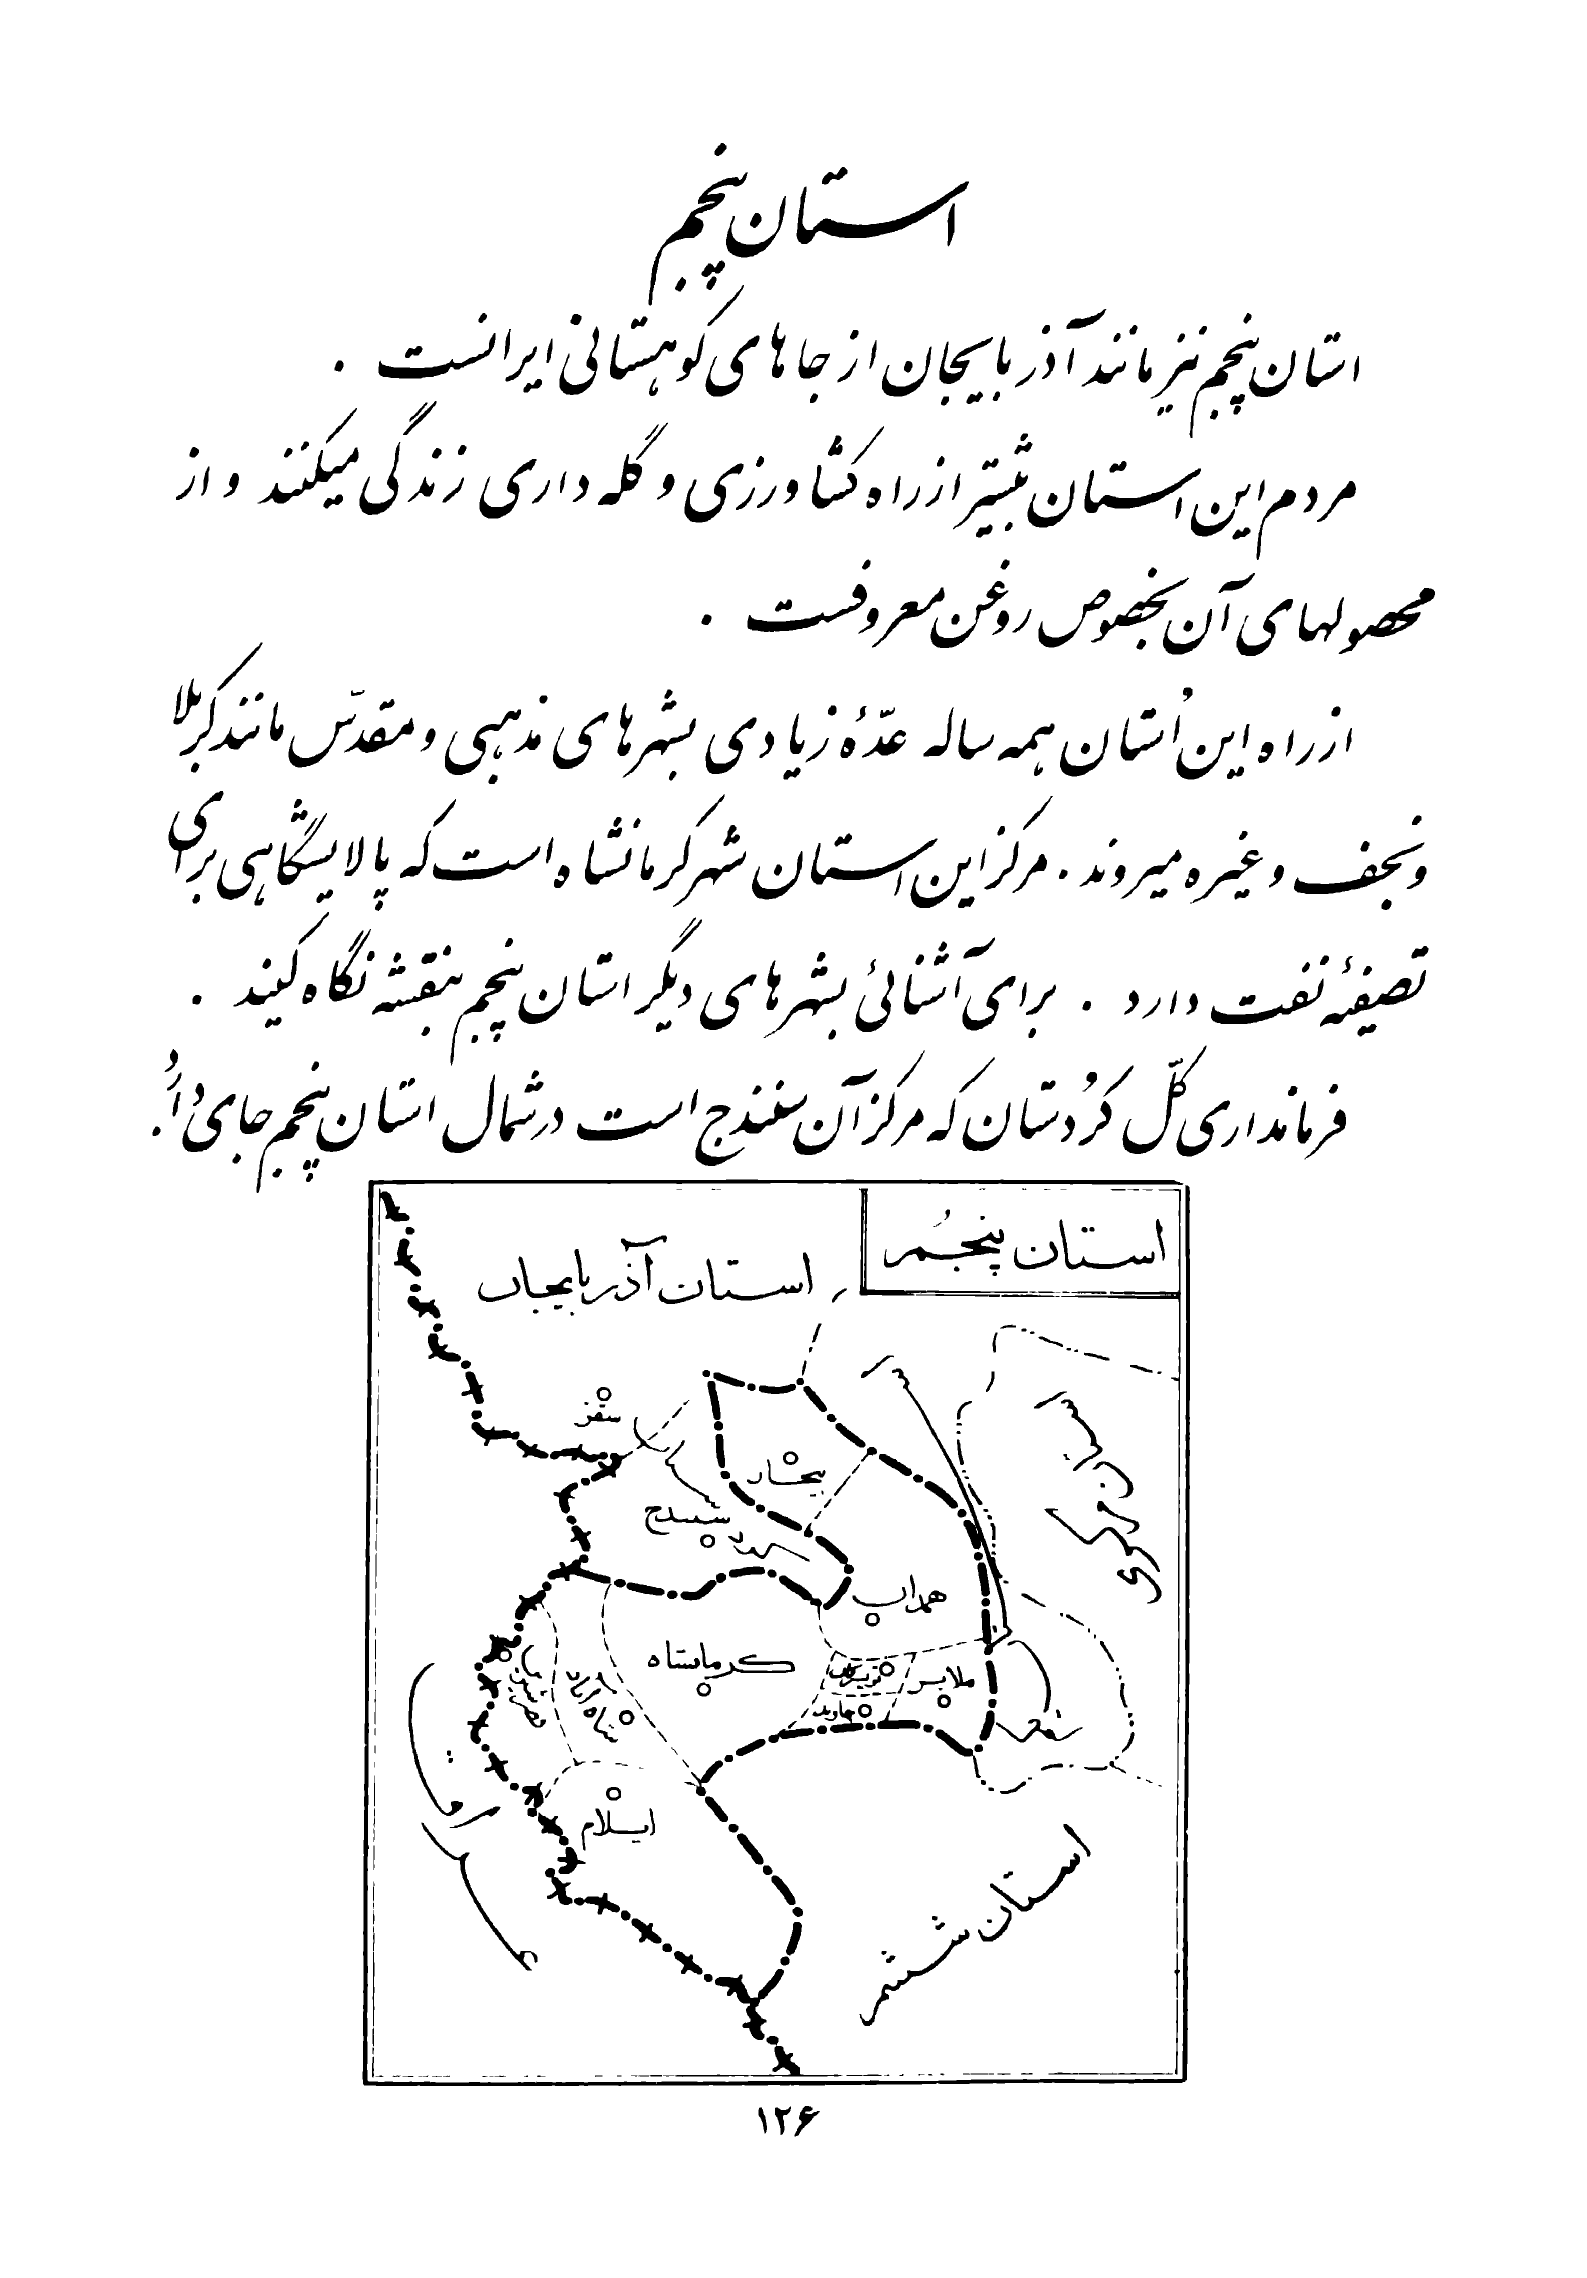 استان پنجم
استان پنجم نیز مانند آذربایجان از جاهای کوهستانی ایرانست .
مردم این استان بیشتر از راه کشاورزی و گله‌داری زندگی میکنند و از
محصولهای آن بخصوص روغن معروفست .
از راه این اُستان همه ساله عدّهٔ زیادی بشهرهای مذهبی و مقدّس مانند کربلا
و نجف و غیره میروند . مرکز این استان شهر کرمانشاه است که پالایشگاهی برای
تصفیهٔ نفت دارد . برای آشنائی بشهرهای دیگر استان پنجم بنقشه نگاه کنید .
فرمانداری کلّ کرُدستان که مرکز آن سنندج است در شمال استان پنجم جای دارد .
استان پنجُم
استان آذربایجان
سقز
بیجار
استان مرکزی
سنندج
همدان
کرمانشاه
تویسرکان
ملایر
نهاوند
شاه آباد
قصر شیرین
ایلام
عراق
استان ششم
۱۲۶